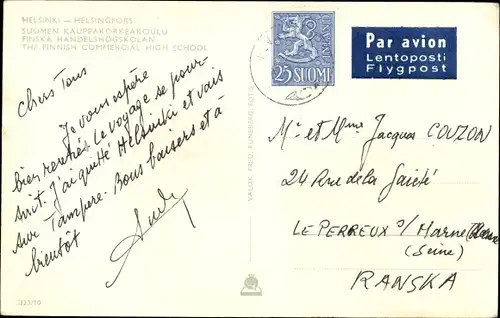 HELSINKI — HELSINGFORS
SUOMEN KAUPPAKORKEAKOULU
FINSKA HANDELSHÖGSKOLAN
THE FINNISH COMMERCIAL HIGH SCHOOL
Chers Tous
Je vous espère
bien rentrés. Le voyage se pour-
suit. J'ai quitté Helsinki et vais
sur Tampere. Bons baisers et à
bientôt
25 SUOMI
Par avion
Lentoposti
Flygpost
Mr et Mme Jacques COUZON
24 Rue de la Gaieté
LE PERREUX s/ Marne
(Seine)
RANSKA
VALOK. FRED. RUNEBERG FOTO.